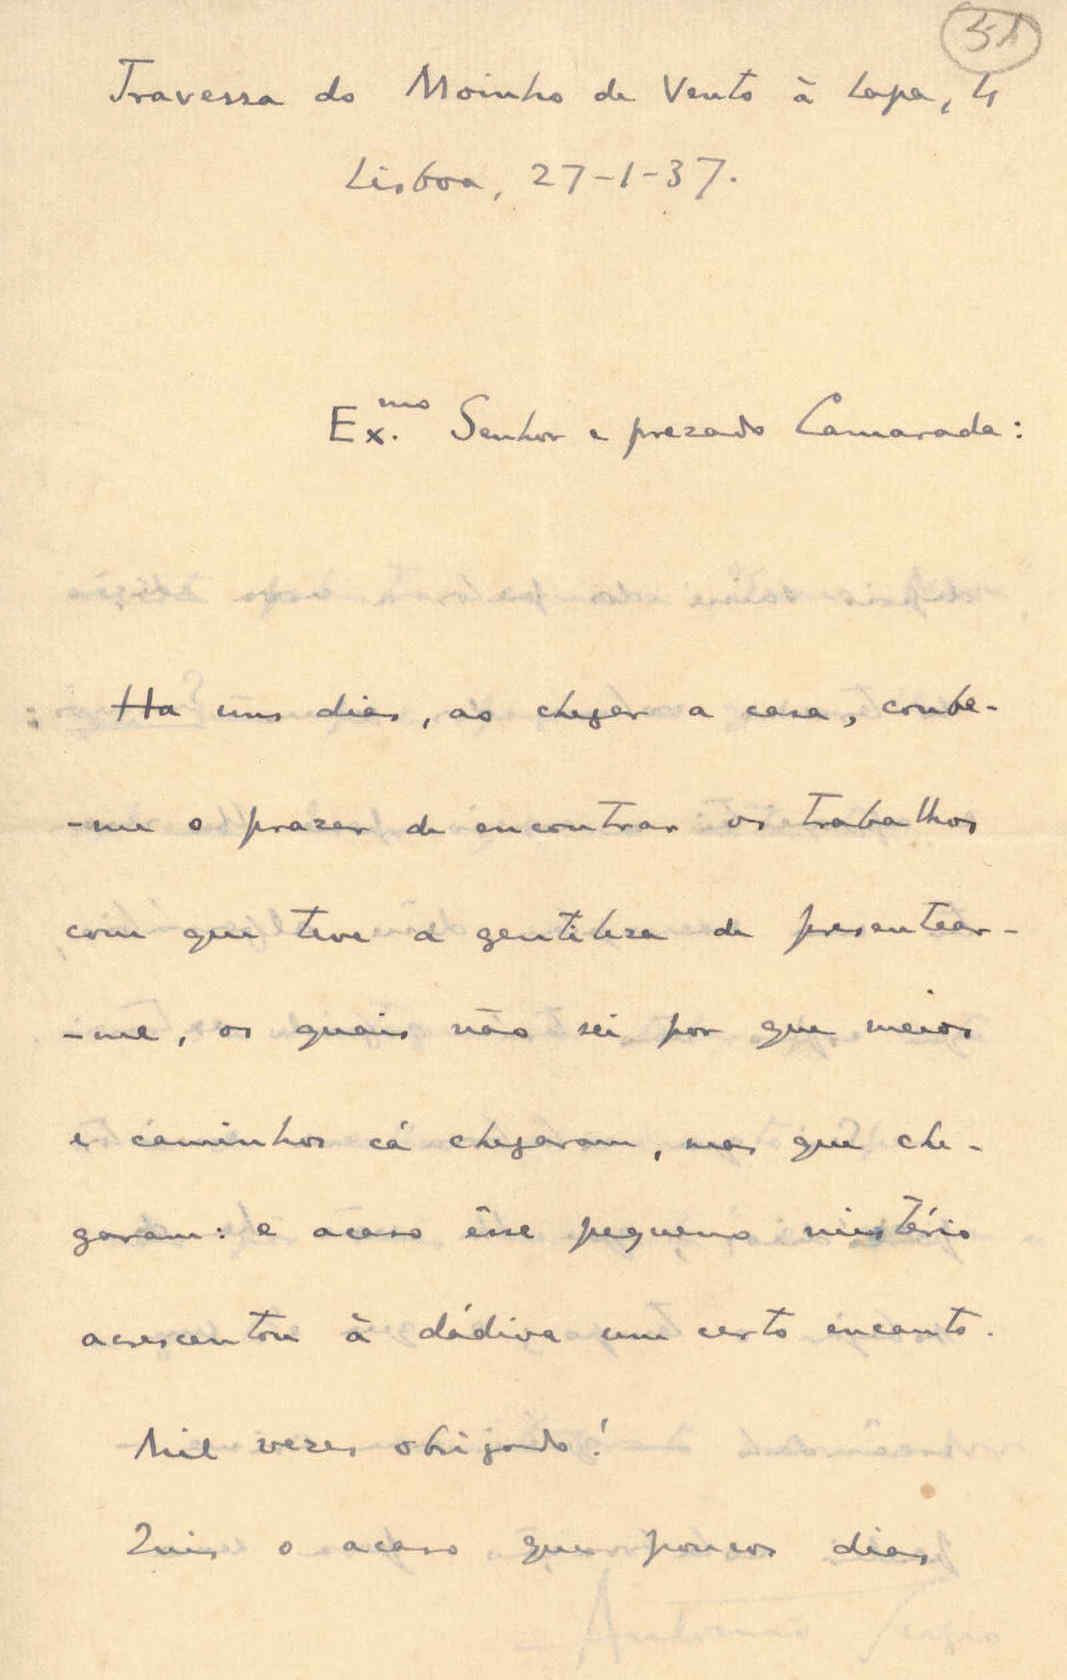 51
Travessa do Moinho de Vento à Lapa, 4
Lisboa, 27-1-37.
Ex.mo Senhor e prezado Camarada:
Ha uns dias, ao chegar a casa, coube-
-me o prazer de encontrar os trabalhos
com que teve a gentileza de presentear-
-me, os quais não sei por que meios
e caminhos cá chegaram, mas que che-
garam: e acaso êsse pequeno mistério
acrescentou à dádiva um certo encanto.
Mil vezes obrigado!
Quis o acaso que poucos dias